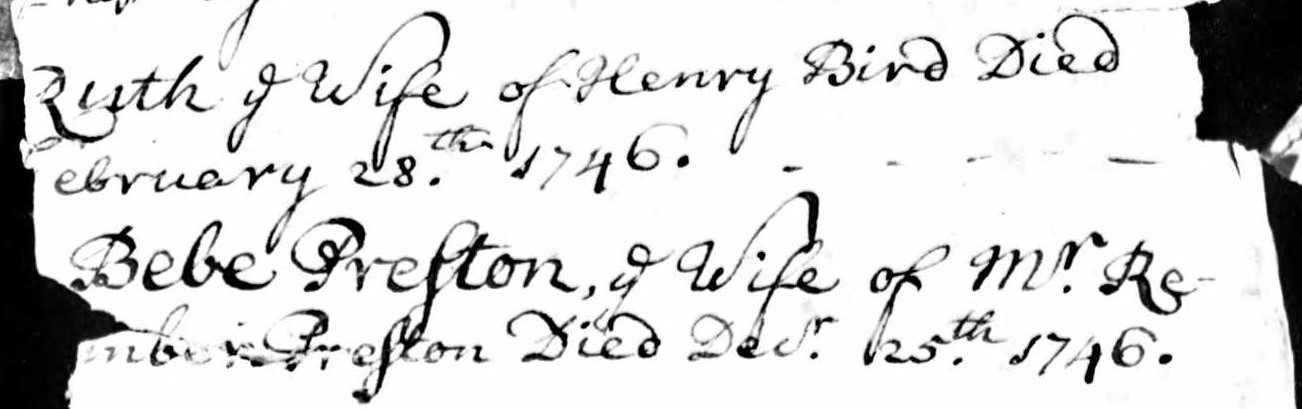 Ruth ye Wife of Henry Bird Died
ebruary 28.th 1746. - - - - -
Bebe Preston, ye Wife of Mr. Re-
mber Preston Died Decr. 25.th 1746.